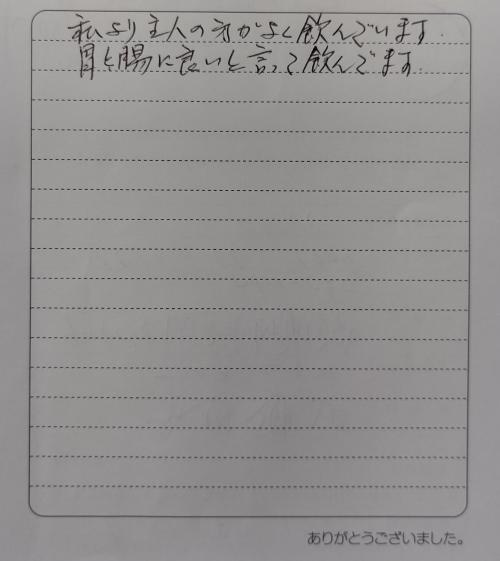 私より主人の方がよく飲んでいます.
胃と腸に良いと言って飲んでます.
ありがとうございました。